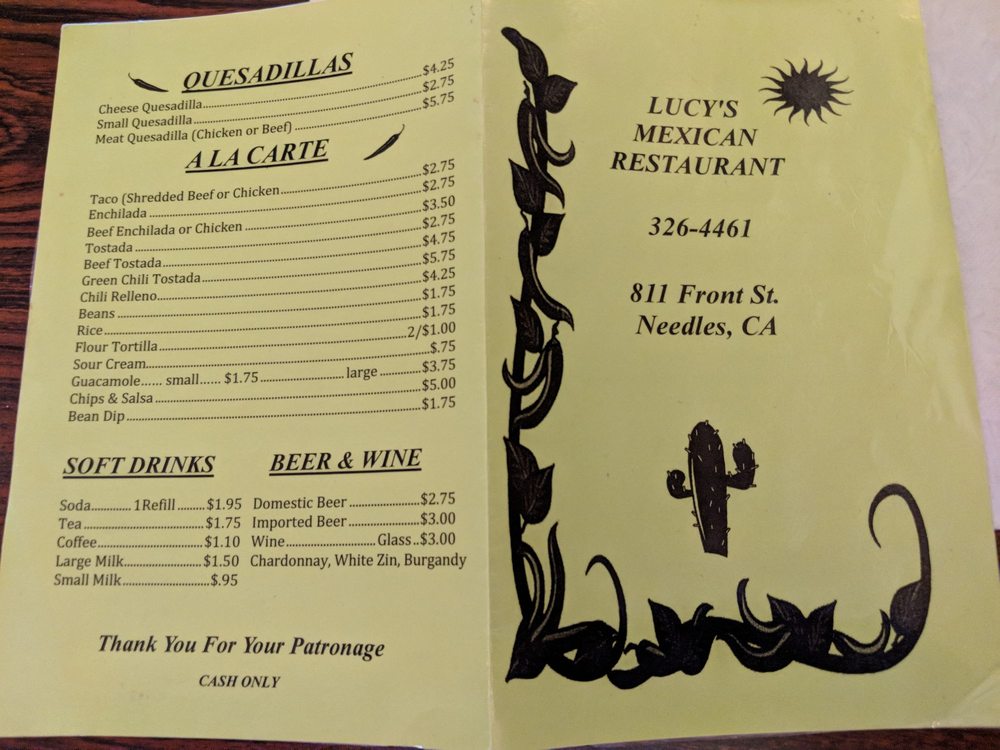 QUESADILLAS
Cheese Quesadilla $4.25
Small Quesadilla $2.75
Meat Quesadilla (Chicken or Beef) $5.75
A LA CARTE
Taco (Shredded Beef or Chicken $2.75
Enchilada $2.75
Beef Enchilada or Chicken $3.50
Tostada $2.75
Beef Tostada $4.75
Green Chili Tostada $5.75
Chili Relleno $4.25
Beans $1.75
Rice $1.75
Flour Tortilla 2/$1.00
Sour Cream $.75
Guacamole...... small...... $1.75 large $3.75
Chips & Salsa $5.00
Bean Dip $1.75
SOFT DRINKS
Soda 1Refill $1.95
Tea $1.75
Coffee $1.10
Large Milk $1.50
Small Milk $.95
BEER & WINE
Domestic Beer $2.75
Imported Beer $3.00
Wine Glass..$3.00
Chardonnay, White Zin, Burgandy
Thank You For Your Patronage
CASH ONLY
LUCY'S
MEXICAN
RESTAURANT
326-4461
811 Front St.
Needles, CA